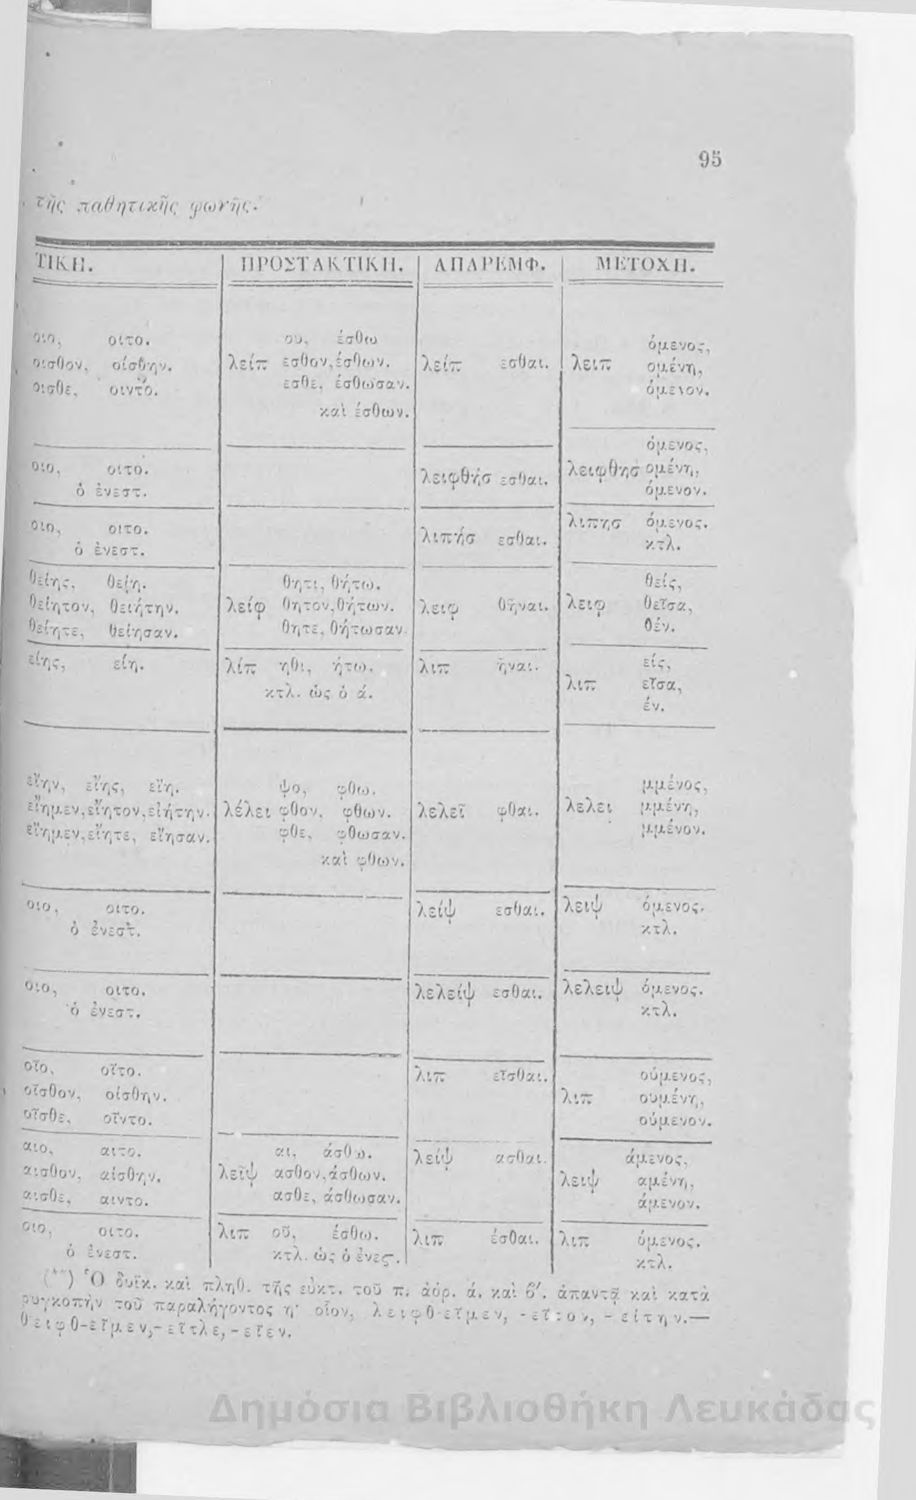 95
τῆς παθητικῆς φωνῆς.
ΤΙΚΗ. ΠΡΟΣΤΑΚΤΙΚΗ. ΑΠΑΡΕΜΦ. ΜΕΤΟΧΗ.
οιο, οιτο. ου, έσθω όμενος,
οισθον, οίσθην. λείπ εσθον, έσθων. λείπ εσθαι. λειπ ομένη,
οισθε, οιντο. εσθε, έσθωσαν. όμενον.
καὶ έσθων.
όμενος,
οιο, οιτο. λειφθήσ εσθαι. λειφθησ ομένη,
ὁ ἐνεστ. όμενον.
οιο, οιτο. λιπήσ εσθαι. λιπησ όμενος.
ὁ ἐνεστ. κτλ.
θείης, θείη. θητι, θήτω. θείς,
θείητον, θειήτην. λείφ θητον, θήτων. λειφ θῆναι. λειφ θεῖσα,
θείητε, θείησαν. θητε, θήτωσαν. θέν.
είης, είη. λίπ ηθι, ήτω. λιπ ῆναι. είς,
κτλ. ὡς ὁ ά. λιπ εῖσα,
έν.
εἴην, εἴης, εἴη. ψο, φθω. μμένος,
εἴημεν, εἴητον, εἰήτην. λέλει φθον, φθων. λελεῖ φθαι. λελει μμένη,
εἴημεν, εἴητε, εἴησαν. φθε, φθωσαν. μμένον.
καὶ φθων.
οιο, οιτο. λείψ εσθαι. λειψ όμενος.
ὁ ἐνεστ. κτλ.
οιο, οιτο. λελείψ εσθαι. λελειψ όμενος.
ὁ ἐνεστ. κτλ.
οῖο, οῖτο. λιπ εῖσθαι. ούμενος,
οῖσθον, οίσθην. λιπ ουμένη,
οῖσθε, οῖντο. ούμενον.
αιο, αιτο. αι, άσθω. λείψ ασθαι. άμενος,
αισθον, αίσθην. λεῖψ ασθον, άσθων. λειψ αμένη,
αισθε, αιντο. ασθε, άσθωσαν. άμενον.
οιο, οιτο. λιπ οῦ, έσθω. λιπ έσθαι. λιπ όμενος.
ὁ ἐνεστ. κτλ. ὡς ὁ ἐνεστ. κτλ.
(**) Ὁ δυϊκ. καὶ πληθ. τῆς εὐκτ. τοῦ π. ἀόρ. ά. καὶ β΄. ἀπαντᾷ καὶ κατὰ
συγκοπὴν τοῦ παραλήγοντος η· οἷον, λειφθ-εῖμεν, -εῖτον, -είτην.—
θειφθ-εῖμεν,-εῖτλε,-εῖεν.
Δημόσια Βιβλιοθήκη Λευκάδας